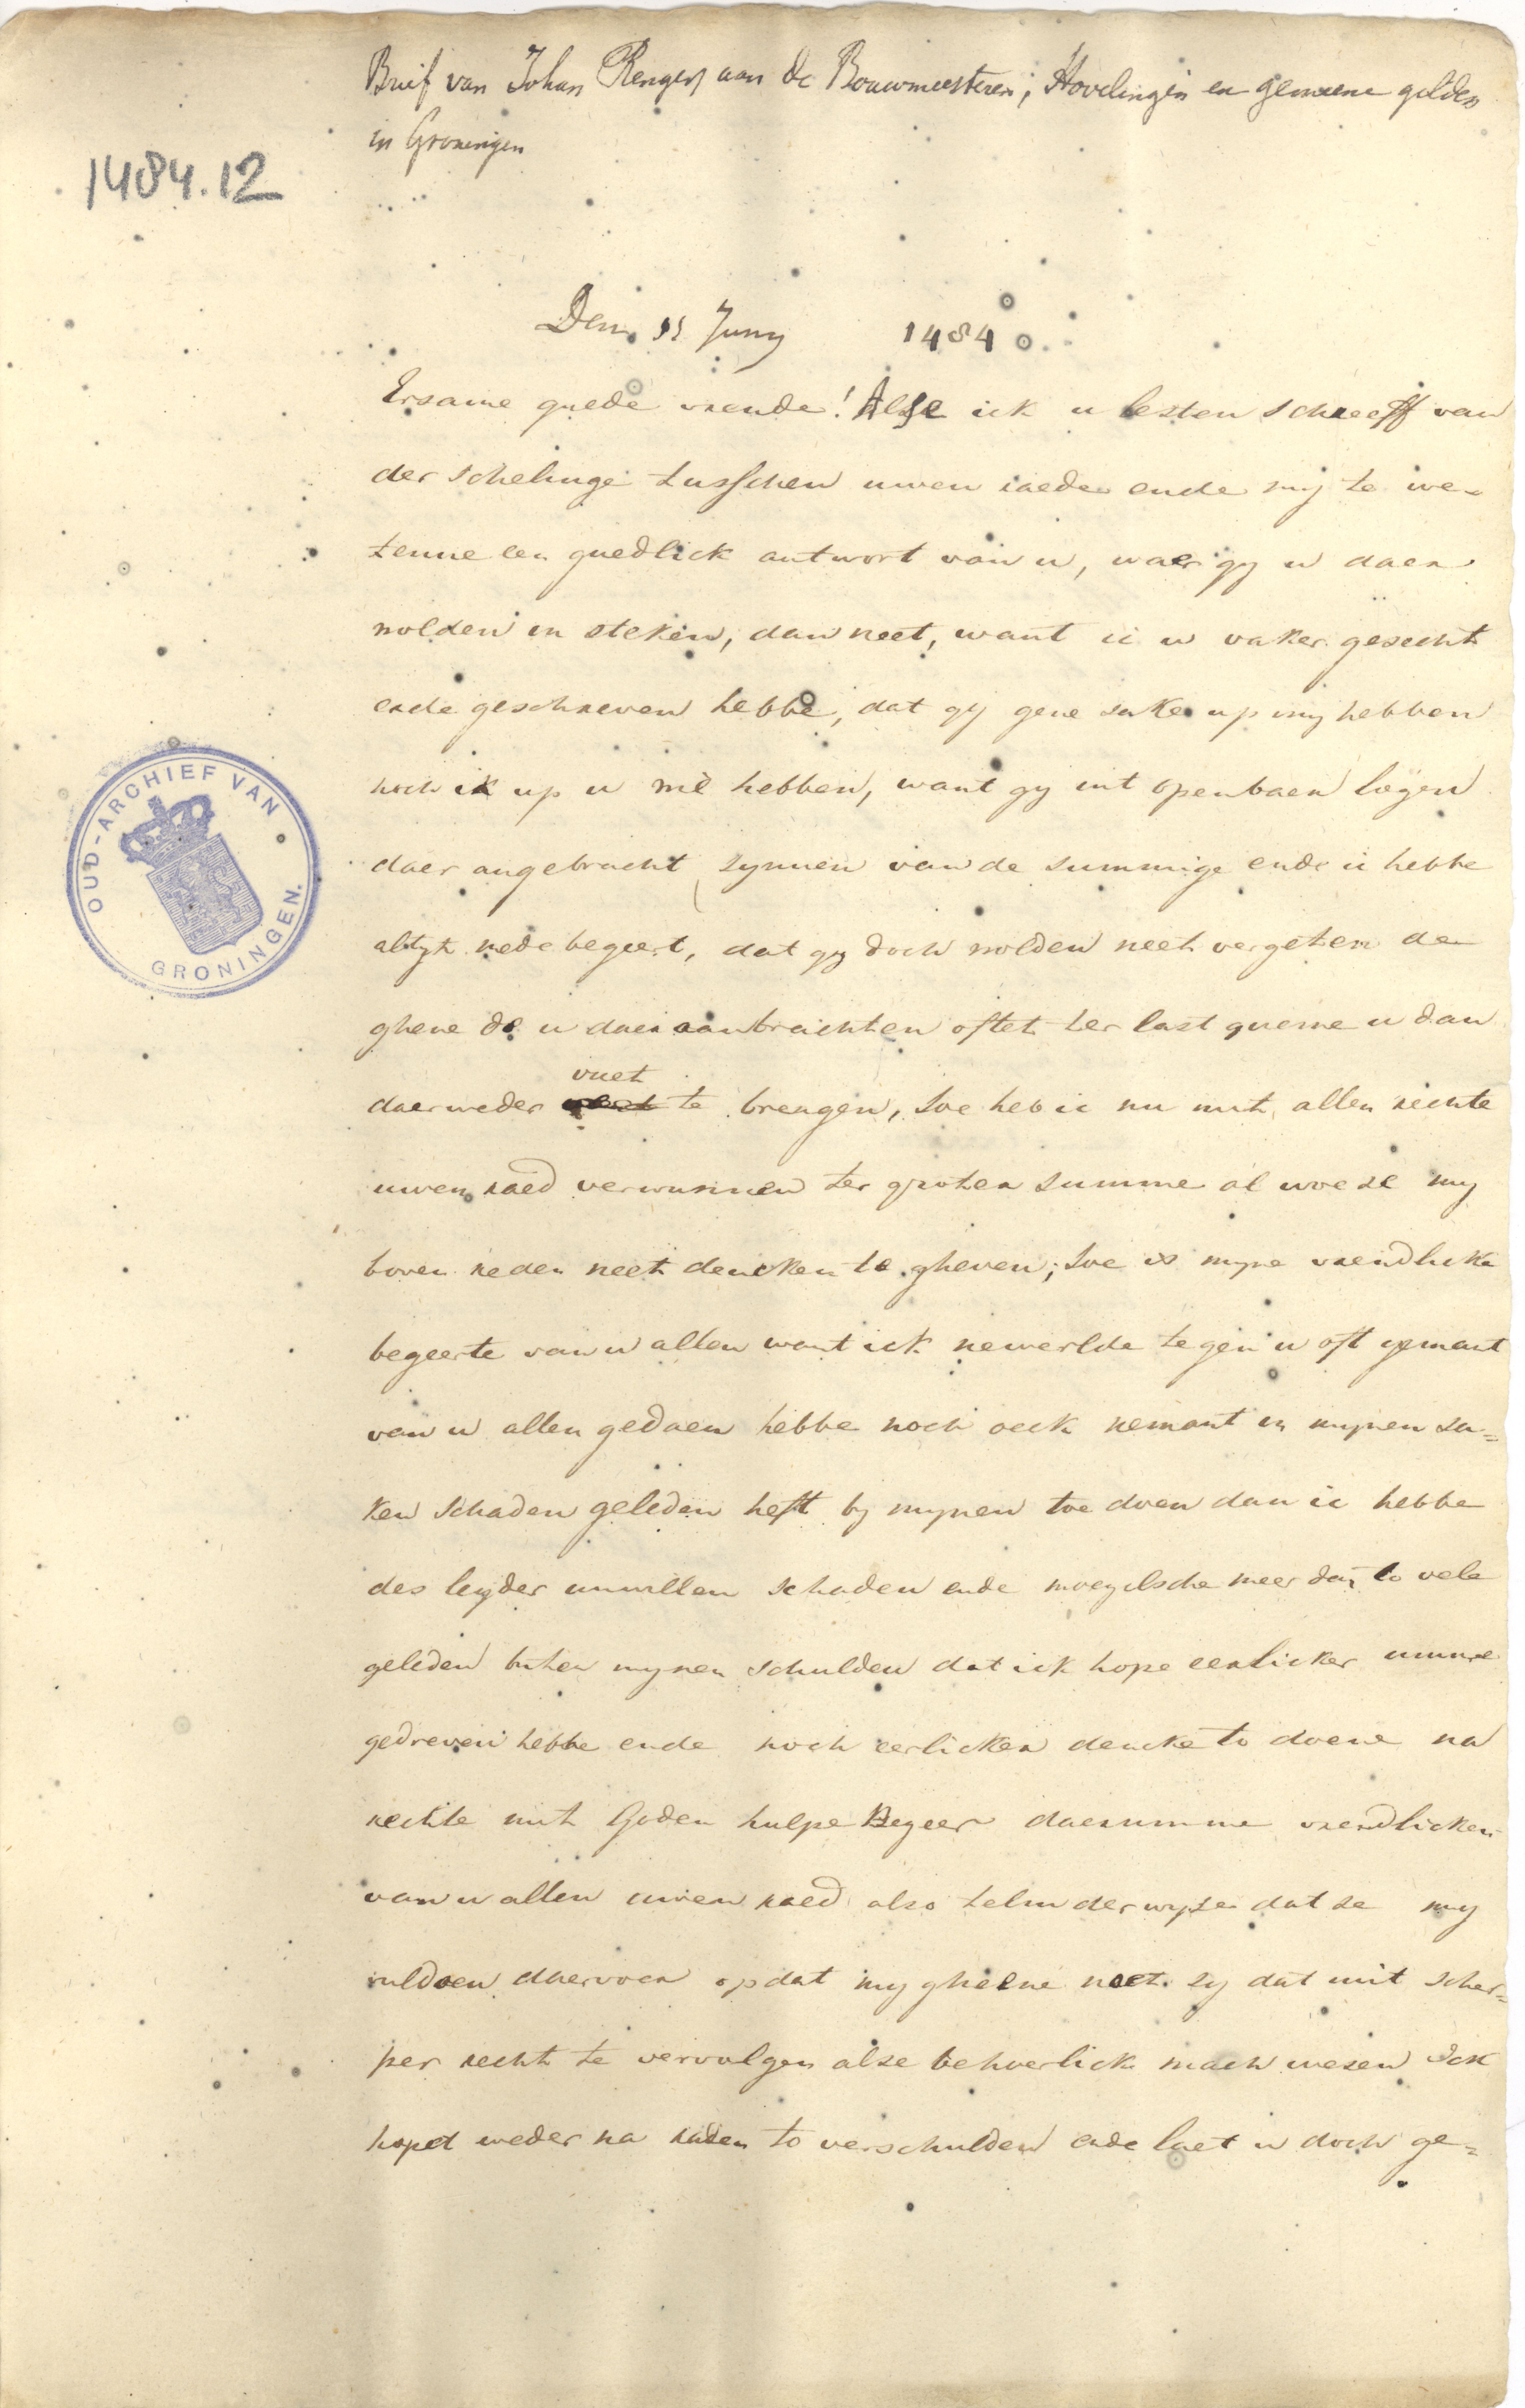 Brief van Johan Rengers aan de Bouwmeesteren, Hovelingen en gemeene gilden
in Groningen
1484.12
Den 11 Juny 1484
Ersame guede vrende! Alse ick u lesten schreeff van
der schelinge tusschen uwen raede ende mij te we-
tenne een guedlick antwort van u, waer gy u daer
wolden in steken, dan neet, want ic u vaker gesecht
ende geschreven hebbe, dat gij gene sake up mij hebben
noch ik up u me hebben, want gy mit openbaer logen
daer angebracht synnen van de summige ende ic hebbe
altyt rede begeert, dat gy doch wolden neet vergeten de
ghene de u daer aanbrachten oftet ter last queme u dan
daer weder vuet te brengen, soe heb ic nu mit allen rechte
uwen raed verwunnen ter groten summe al woe se my
boven reden neet dencken te gheven; soe is myne vrendlicke
begeerte van u allen want ick newerlde tegen u oft yemant
van u allen gedaen hebbe noch oeck nemant in mynen sa=
ken schaden geleden heft by mynen toe doen dan ic hebbe
des leyder unwillen schaden ende moeyelsche meer dan to vele
geleden buten mynen schulden dat ick hope eerlicker umme
gedreven hebbe ende noch eerlicken dencke to doene na
rechte mit Goden hulpe Begeer daerumme vrendlicken
van u allen uwen raed also helm der wyse dat se my
vuldoen daervoer opdat my gheene neet sy dat mit scher=
per recht te vervolgen alse behoerlick mach wesen Ick
hopet weder na raden to verschulden ende laet u doch ge=
OUD-ARCHIEF VAN
GRONINGEN.